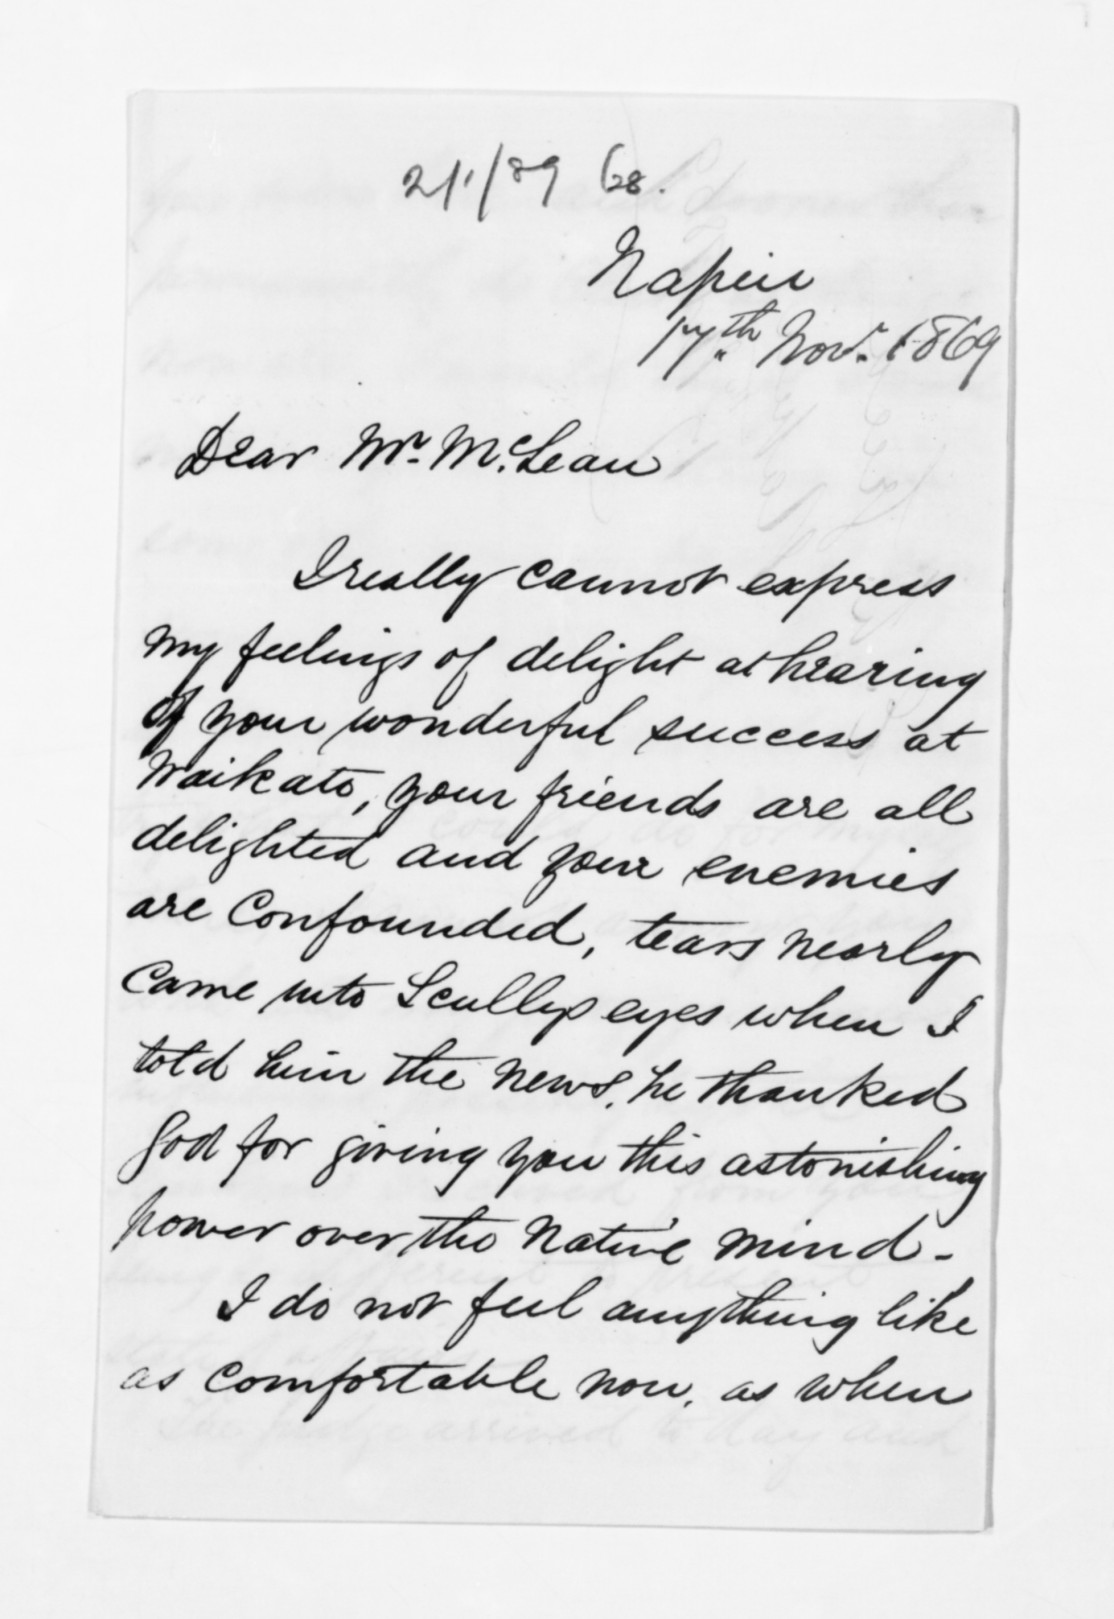 2/1/89 G28.
Napier
17th Novr. 1869
Dear Mr. McLean
I really cannot express
my feelings of delight at hearing
of your wonderful success at
Waikato, your friends are all
delighted and your enemies
are Confounded, tears nearly
Came into Scullys eyes when I
told him the news. he thanked
God for giving you this astonishing
power over the Native mind -
I do not feel anything like
as Comfortable now, as when